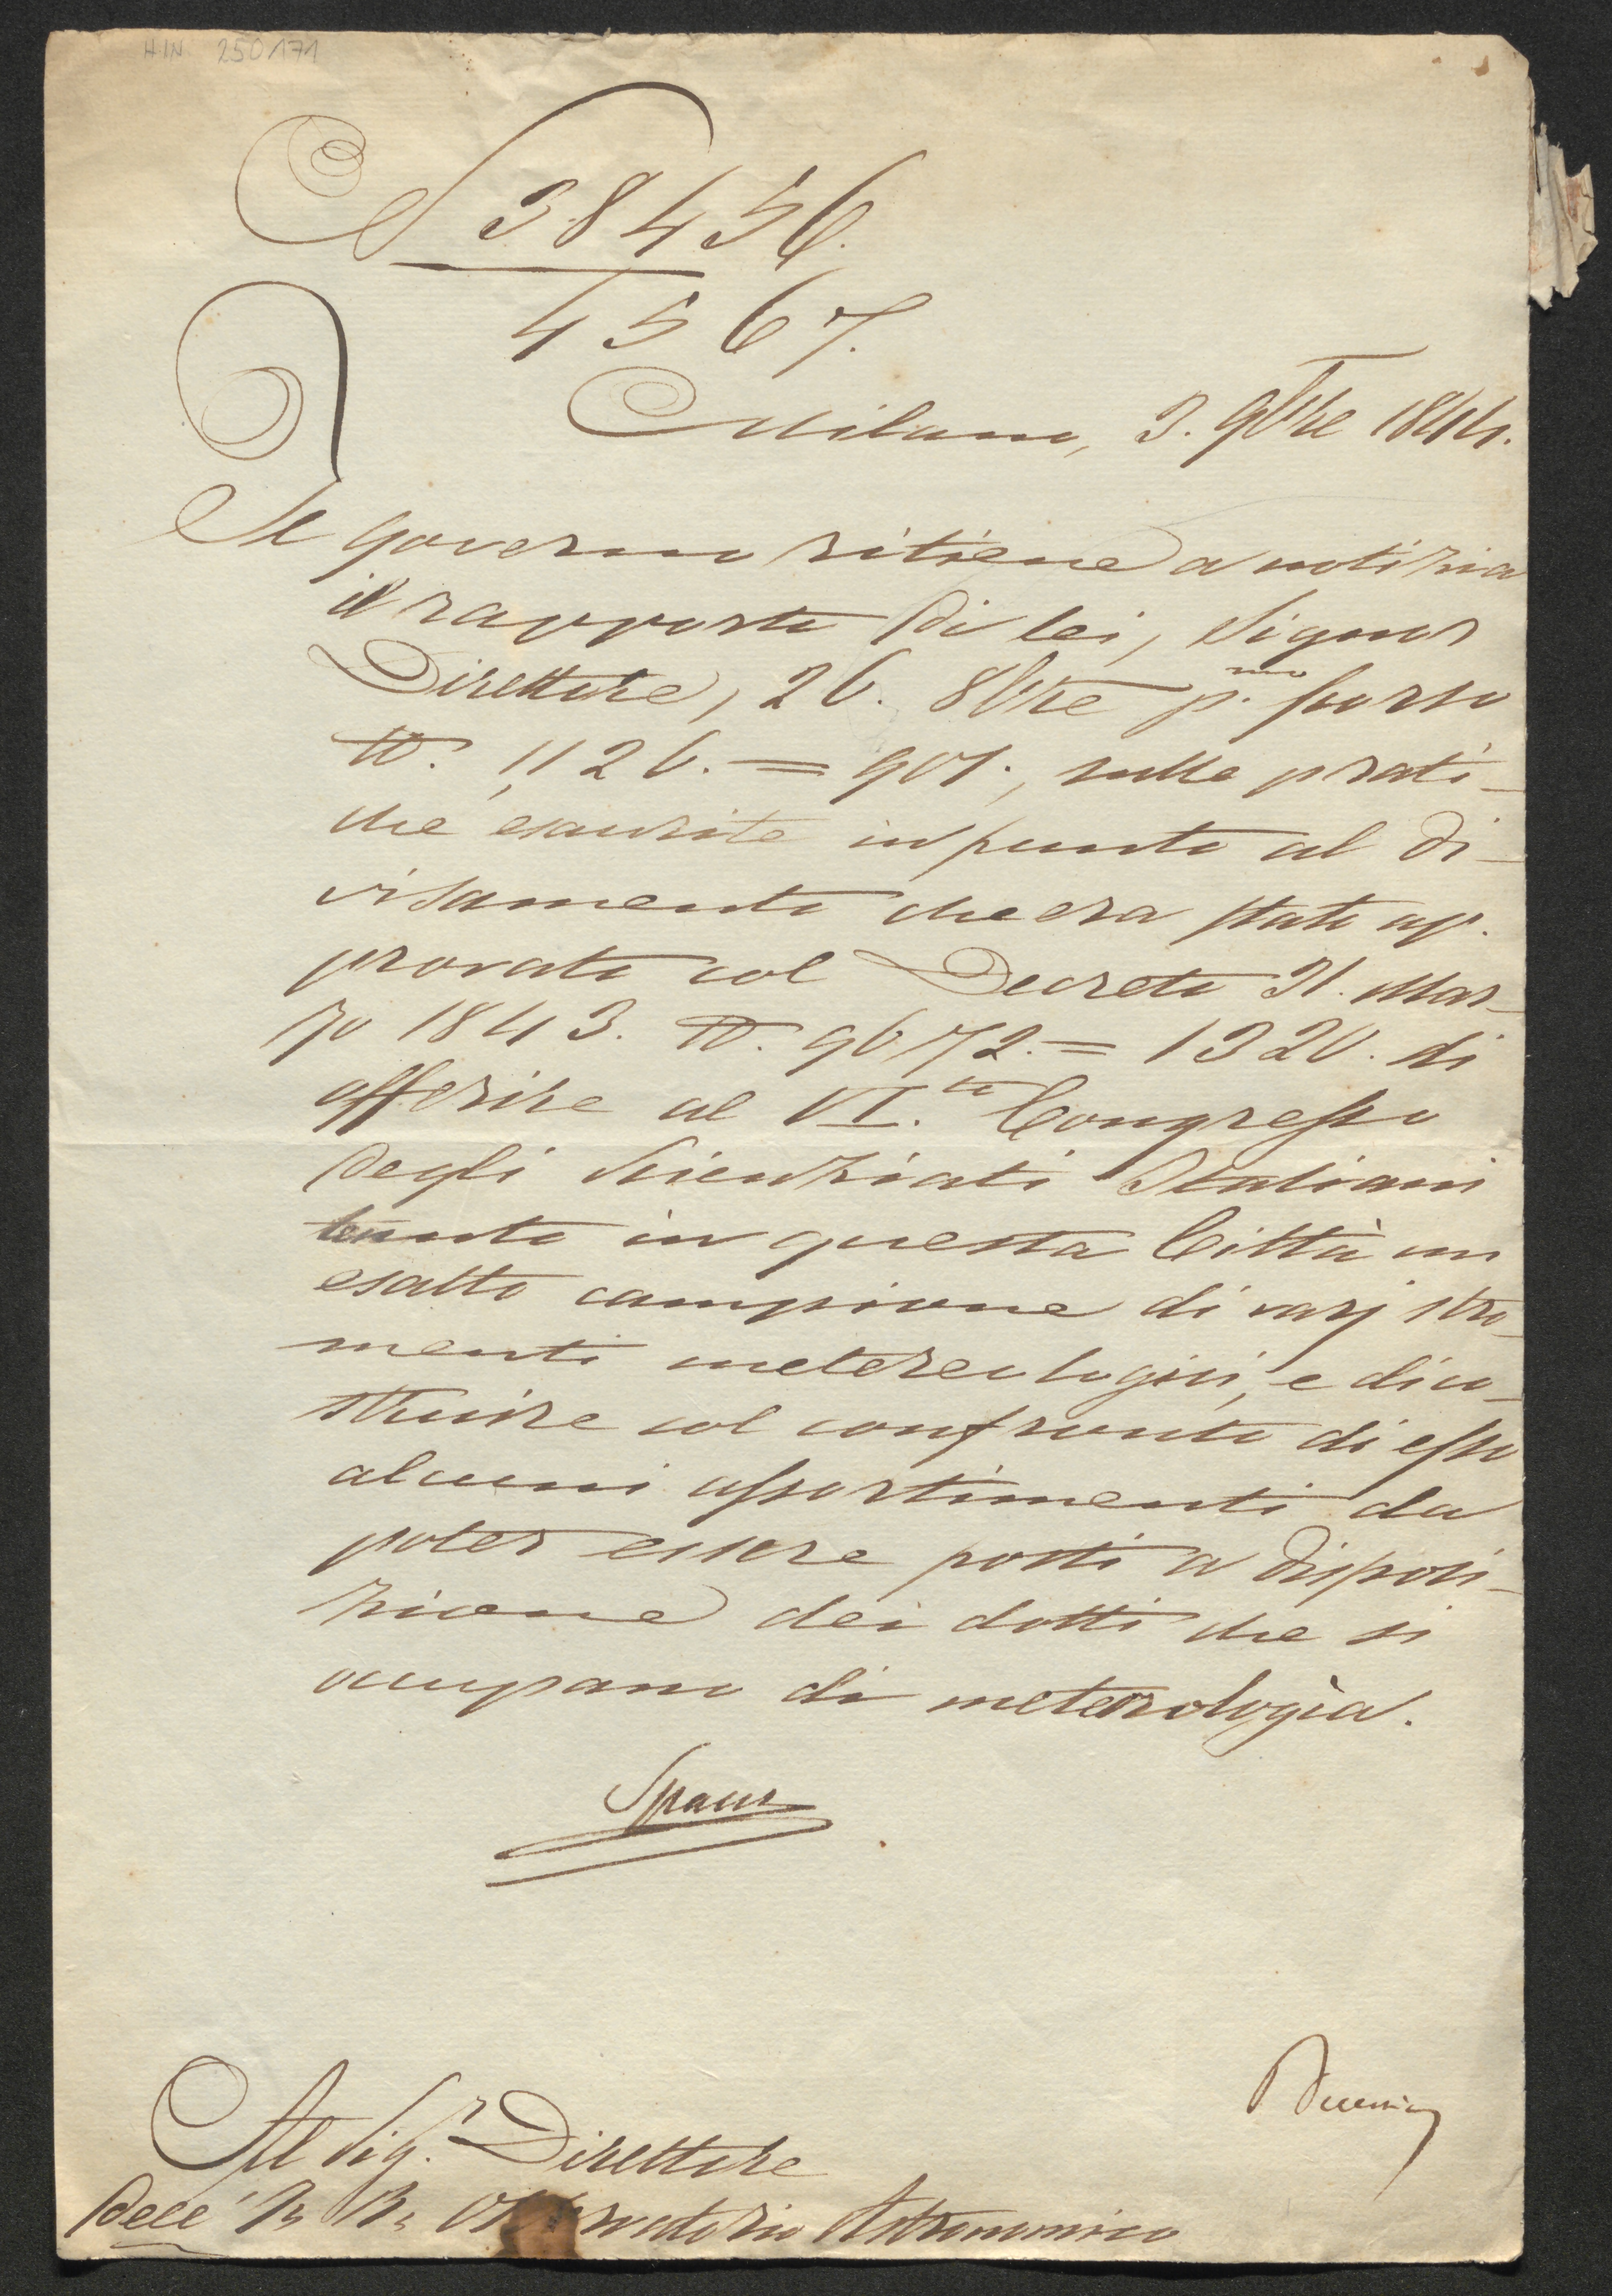 H.IN. 250171
N 38456.
4567.
Milano, 3. 9bre 1844.
Il Governo ritiene a notizia
il rapporto di lei, Signor
Direttore, 26. 8bre p.mo scorso
N.° 1126. = 901., sulle prati-
che esaurite in punto al di-
visamento che era stato ap-
provato col Decreto 31. Mar-
zo 1843. N. 9672. = 1320. di
offerire al VI.to Congresso
degli Scienziati Italiani
tenuto in questa Città un
esatto campione di varj stro-
menti metereologici, e di co-
struire col confronto di esso
alcuni assortimenti da
poter essere posti a disposi-
zione dei dotti che si
occupano di meterologia.
Spaur
Al Sig.r Direttore
dell' I. R. Osservatorio Astronomico